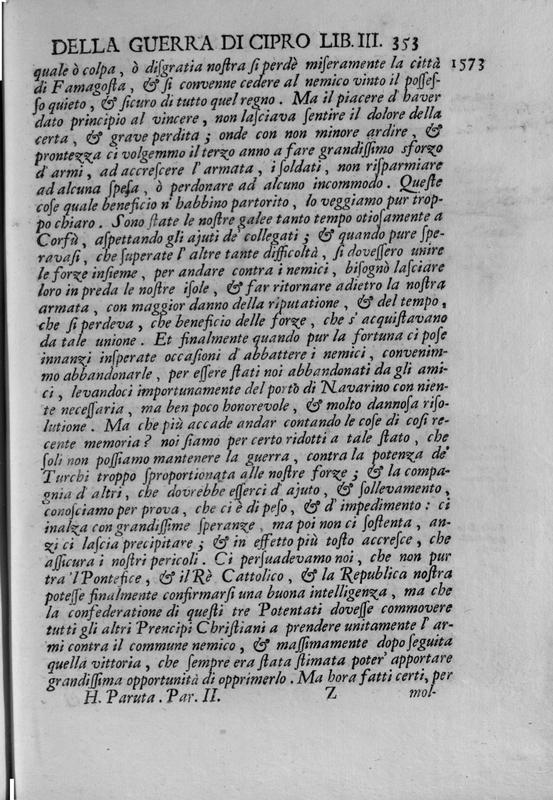 DELLA GUERRA DI CIPRO LIB. III. 353
quale ò colpa, ò disgratia nostra si perdè miseramente la città 1573
di Famagosta, & si convenne cedere al nemico vinto il posses-
so quieto, & sicuro di tutto quel regno. Ma il piacere d'haver
dato principio al vincere, non lasciava sentire il dolore della
certa, & grave perdita; onde con non minore ardire, &
prontezza ci volgemmo il terzo anno a fare grandissimo sforzo
d'armi, ad accrescere l'armata, i soldati, non risparmiare
ad alcuna spesa, ò perdonare ad alcuno incommodo. Queste
cose quale beneficio n'habbino partorito, lo veggiamo pur trop-
po chiaro. Sono state le nostre galee tanto tempo otiosamente a
Corfù, aspettando gli ajuti de' collegati; & quando pure spe-
ravasi, che superate l'altre tante difficoltà, si dovessero unire
le forze insieme, per andare contra i nemici, bisognò lasciare
loro in preda le nostre isole, & far ritornare adietro la nostra
armata, con maggior danno della riputatione, & del tempo,
che si perdeva, che beneficio delle forze, che s'acquistavano
da tale unione. Et finalmente quando pur la fortuna ci pose
innanzi insperate occasioni d'abbattere i nemici, convenim-
mo abbandonarle, per essere stati noi abbandonati da gli ami-
ci, levandoci importunamente del porto di Navarino con nien-
te necessaria, ma ben poco honorevole, & molto dannosa riso-
lutione. Ma che più accade andar contando le cose di così re-
cente memoria? noi siamo per certo ridotti a tale stato, che
soli non possiamo mantenere la guerra, contra la potenza de'
Turchi troppo sproportionata alle nostre forze; & la compa-
gnia d'altri, che dovrebbe esserci d'ajuto, & sollevamento,
conosciamo per prova, che ci è di peso, & d'impedimento: ci
inalza con grandissime speranze, ma poi non ci sostenta, an-
zi ci lascia precipitare; & in effetto più tosto accresce, che
assicura i nostri pericoli. Ci persuadevamo noi, che non pur
tra 'l Pontefice, & il Rè Cattolico, & la Republica nostra
potesse finalmente confirmarsi una buona intelligenza, ma che
la confederatione di questi tre Potentati dovesse commovere
tutti gli altri Prencipi Christiani a prendere unitamente l'ar-
mi contra il commune nemico, & massimamente dopo seguita
quella vittoria, che sempre era stata stimata poter' apportare
grandissima opportunità di opprimerlo. Ma hora fatti certi, per
H. Paruta. Par. II. Z mol-